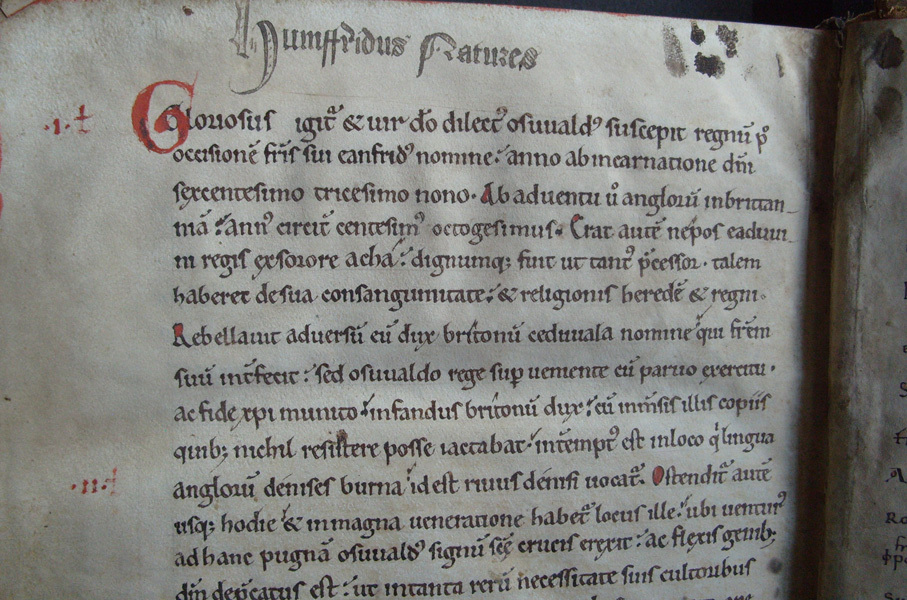 Humffridus Natures
.i. t Gloriosus igit᷑ & uir dō dilect᷒ osuuald᷒ suscepit regnū ṗ
occisionē fr̄is sui eanfrid᷒ nomine. anno ab incarnatione dn̄i
sexcentesimo tricesimo nono. Ab aduentu ů anglorū inbrittan
niā. ann᷒ circit᷑ centesim᷒ octogesimus. Erat autē nepos eaduui
ni regis ex sorore acha. dignumq; fuit ut tant᷒ p̄cessor. talem
haberet de sua consanguinitate. & religionis heredē & regni.
Rebellauit aduersū eū dux britonū ceduuala nomine qui fr̄em
suū int̄fecit. sed osuualdo rege sup̱ueniente cū paruo exercitu.
ac fide xp̄i munito. infandus britonū dux. cū inm̄sis illis copiis
quib; nichil resistere posse iactabat. int̄empt᷒ est inloco qͥ lingua
.ii. t anglorū denises burna id est riuus denisi uocat᷑. Ostendit᷑ autē
usq; hodie & in magna ueneratione habet᷑ locus ille. ubi uentur᷒
ad hanc pugnā osuuald᷒ signū sc̄e crucis erexit. ac flexis genib;
dn̄m dep̄catus est. ut intanta rerū necessitate suis cultoribus